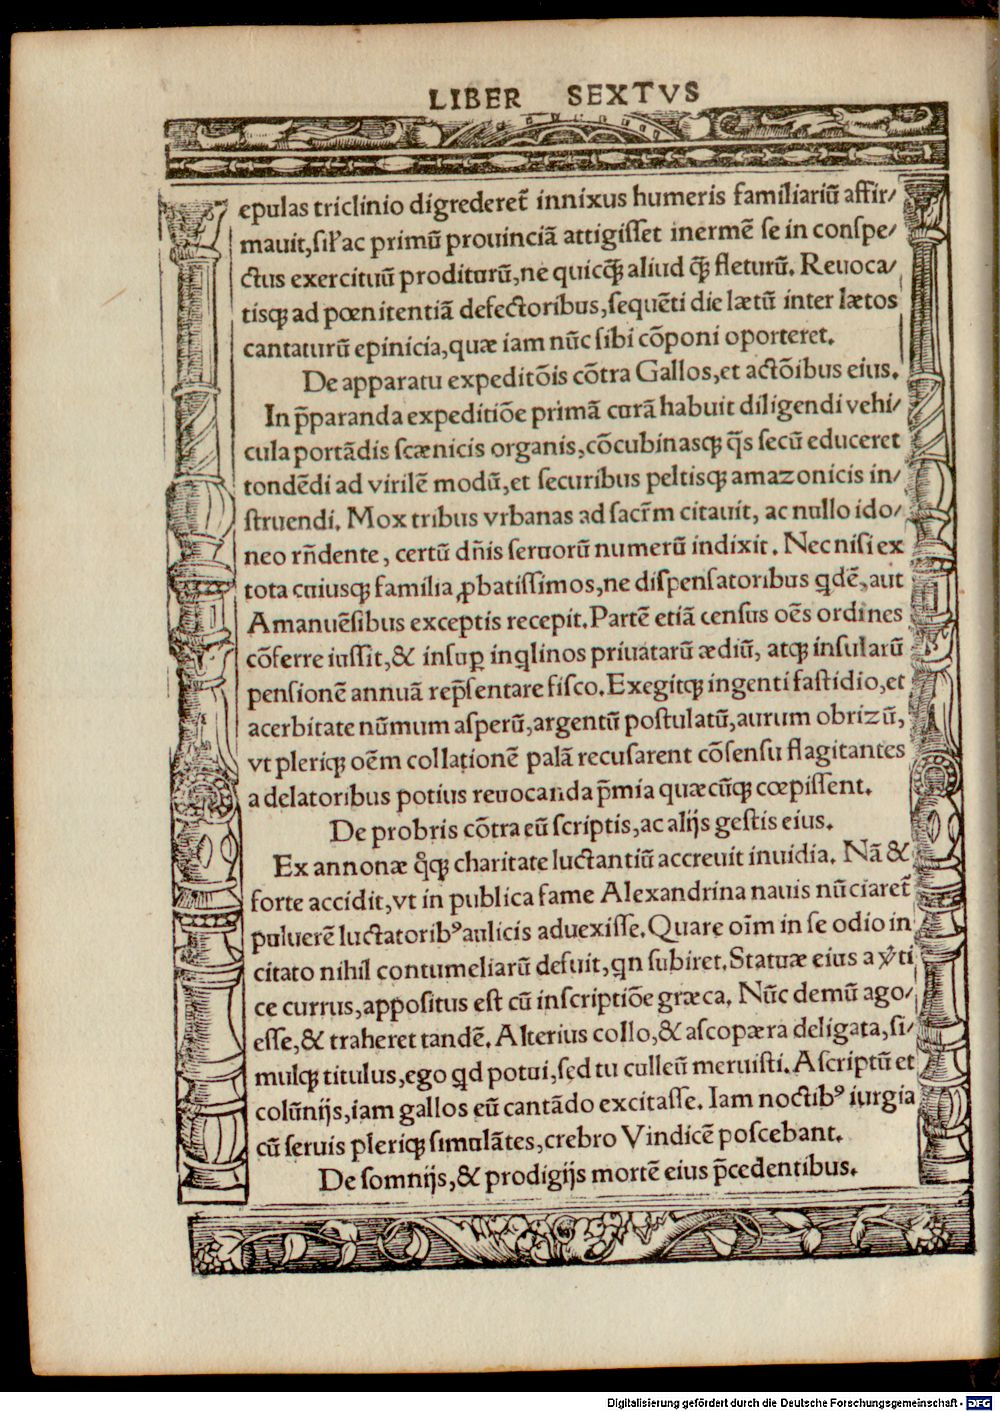 LIBER SEXTVS
epulas triclinio digrederet̃ innixus humeris familiariũ affir/
mauit, sił'ac primũ prouinciã attigisset inermẽ se in conspe/
ctus exercituũ proditurũ, ne quicꝗ̃ aliud ꝗ̃ fleturũ. Reuoca/
tisqꝫ ad pœnitentiã defectoribus, sequẽti die lætũ inter lætos
cantaturũ epinicia, quæ iam nũc sibi cõponi oporteret.
De apparatu expeditõis cõtra Gallos, et actõibus eius.
In p̃paranda expeditiõe primã curã habuit diligendi vehi/
cula portãdis scænicis organis, cõcubinasqꝫ q̃s secũ educeret
tondẽdi ad virilẽ modũ, et securibus peltisqꝫ amazonicis in/
struendi. Mox tribus vrbanas ad sacr̃m citauit, ac nullo ido/
neo rñdente, certũ dñis seruorũ numerũ indixit. Nec nisi ex
tota cuiusqꝫ familia ꝓbatissimos, ne dispensatoribus qdẽ, aut
Amanuẽsibus exceptis recepit. Partẽ etiã census oẽs ordines
cõferre iussit, & insuꝑ inqlinos priuatarũ ædiũ, atqꝫ insularũ
pensionẽ annuã rep̃sentare fisco. Exegitqꝫ ingenti fastidio, et
acerbitate nũmum asperũ, argentũ postulatũ, aurum obrizũ,
vt pleriqꝫ oẽm collationẽ palã recusarent cõsensu flagitantes
a delatoribus potius reuocanda p̃mia quæcũqꝫ cœpissent.
De probris cõtra eũ scriptis, ac alijs gestis eius.
Ex annonæ qͦqꝫ charitate luctantiũ accreuit inuidia. Nã &
forte accidit, vt in publica fame Alexandrina nauis nũciaret̃
puluerẽ luctatoribꝰ aulicis aduexisse. Quare oĩm in se odio in
citato nihil contumeliarũ defuit, qn subiret. Statuæ eius a v̓ti
ce currus, appositus est cũ inscriptiõe græca. Nũc demũ ago/
esse, & traheret tandẽ. Alterius collo, & ascopæra deligata, si/
mulqꝫ titulus, ego qd potui, sed tu culleũ meruisti. Ascriptũ et
colũnijs, iam gallos eũ cantãdo excitasse. Iam noctibꝰ iurgia
cũ seruis pleriqꝫ simulãtes, crebro Vindicẽ poscebant.
De somnijs, & prodigijs mortẽ eius p̃cedentibus.
Digitalisierung gefördert durch die Deutsche Forschungsgemeinschaft - DFG